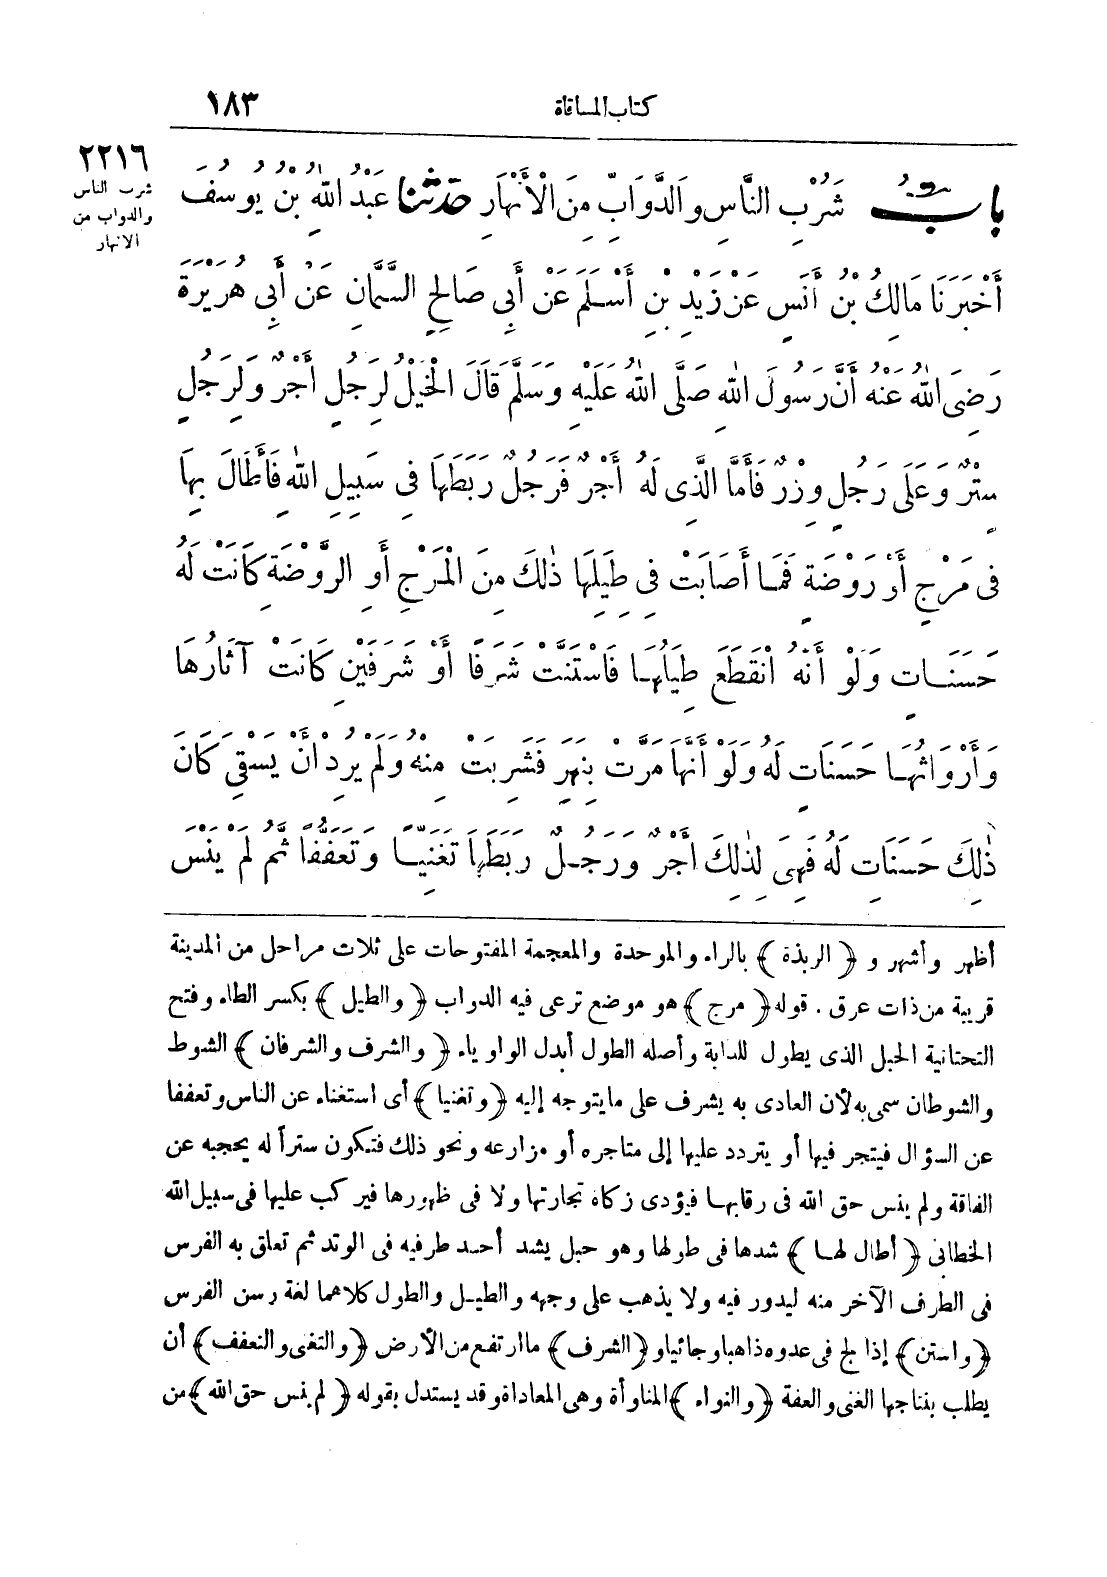 كتاب المساقاة ١٨٣
٢٢١٦
شرب الناس
والدواب من
الانهار
بَابُ شُرْبِ النَّاسِ وَالدَّوَابِّ مِنَ الْأَنْهَارِ حَدَّثَنَا عَبْدُ اللهِ بْنُ يُوسُفَ
أَخْبَرَنَا مَالِكُ بْنُ أَنَسٍ عَنْ زَيْدِ بْنِ أَسْلَمَ عَنْ أَبِي صَالِحٍ السَّمَّانِ عَنْ أَبِي هُرَيْرَةَ
رَضِيَ اللهُ عَنْهُ أَنَّ رَسُولَ اللهِ صَلَّى اللهُ عَلَيْهِ وَسَلَّمَ قَالَ الْخَيْلُ لِرَجُلٍ أَجْرٌ وَلِرَجُلٍ
سِتْرٌ وَعَلَى رَجُلٍ وِزْرٌ فَأَمَّا الَّذِى لَهُ أَجْرٌ فَرَجُلٌ رَبَطَهَا فِى سَبِيلِ اللهِ فَأَطَالَ بِهَا
فِى مَرْجٍ أَوْ رَوْضَةٍ فَمَا أَصَابَتْ فِى طِيَلِهَا ذٰلِكَ مِنَ الْمَرْجِ أَوِ الرَّوْضَةِ كَانَتْ لَهُ
حَسَنَاتٍ وَلَوْ أَنَّهُ انْقَطَعَ طِيَلُهَا فَاسْتَنَّتْ شَرَفًا أَوْ شَرَفَيْنِ كَانَتْ آثَارُهَا
وَأَرْوَاثُهَا حَسَنَاتٍ لَهُ وَلَوْ أَنَّهَا مَرَّتْ بِنَهَرٍ فَشَرِبَتْ مِنْهُ وَلَمْ يُرِدْ أَنْ يَسْقِىَ كَانَ
ذٰلِكَ حَسَنَاتٍ لَهُ فَهِىَ لِذٰلِكَ أَجْرٌ وَرَجُلٌ رَبَطَهَا تَغَنِّيًا وَتَعَفُّفًا ثُمَّ لَمْ يَنْسَ
أظهر وأشهر و ﴿الربذة﴾ بالراء والموحدة والمعجمة المفتوحات على ثلاث مراحل من المدينة
قريبة من ذات عرق . قوله ﴿مرج﴾ هو موضع ترعى فيه الدواب ﴿والطيل﴾ بكسر الطاء وفتح
التحتانية الحبل الذى يطول للدابة وأصله الطول أبدل الواو ياء ﴿والشرف والشرفان﴾ الشوط
والشوطان سمى به لأن العادى به يشرف على ما يتوجه إليه ﴿وتغنيا﴾ أى استغناء عن الناس وتعففا
عن السؤال فيتجر فيها أو يتردد عليها إلى متاجره أو مزارعه ونحو ذلك فتكون سترأ له يحجبه عن
الفاقة ولم ينس حق الله فى رقابها فيؤدى زكاة تجارتها ولا فى ظهورها فيركب عليها فى سبيل الله
الخطابى ﴿أطال لها﴾ شدها فى طولها وهو حبل يشد أحد طرفيه فى الوتد ثم تعلق به الفرس
فى الطرف الآخر منه ليدور فيه ولا يذهب على وجهه والطيل والطول كلاهما لغة رسن الفرس
﴿واستن﴾ إذا لج فى عدوه ذاهبا وجائيا و﴿الشرف﴾ ما ارتفع من الأرض ﴿والتغنى والتعفف﴾ أن
يطلب بنتاجها الغنى والعفة ﴿والنواء﴾ المناوأة وهى المعاداة وقد يستدل بقوله ﴿لم ينس حق الله﴾ من